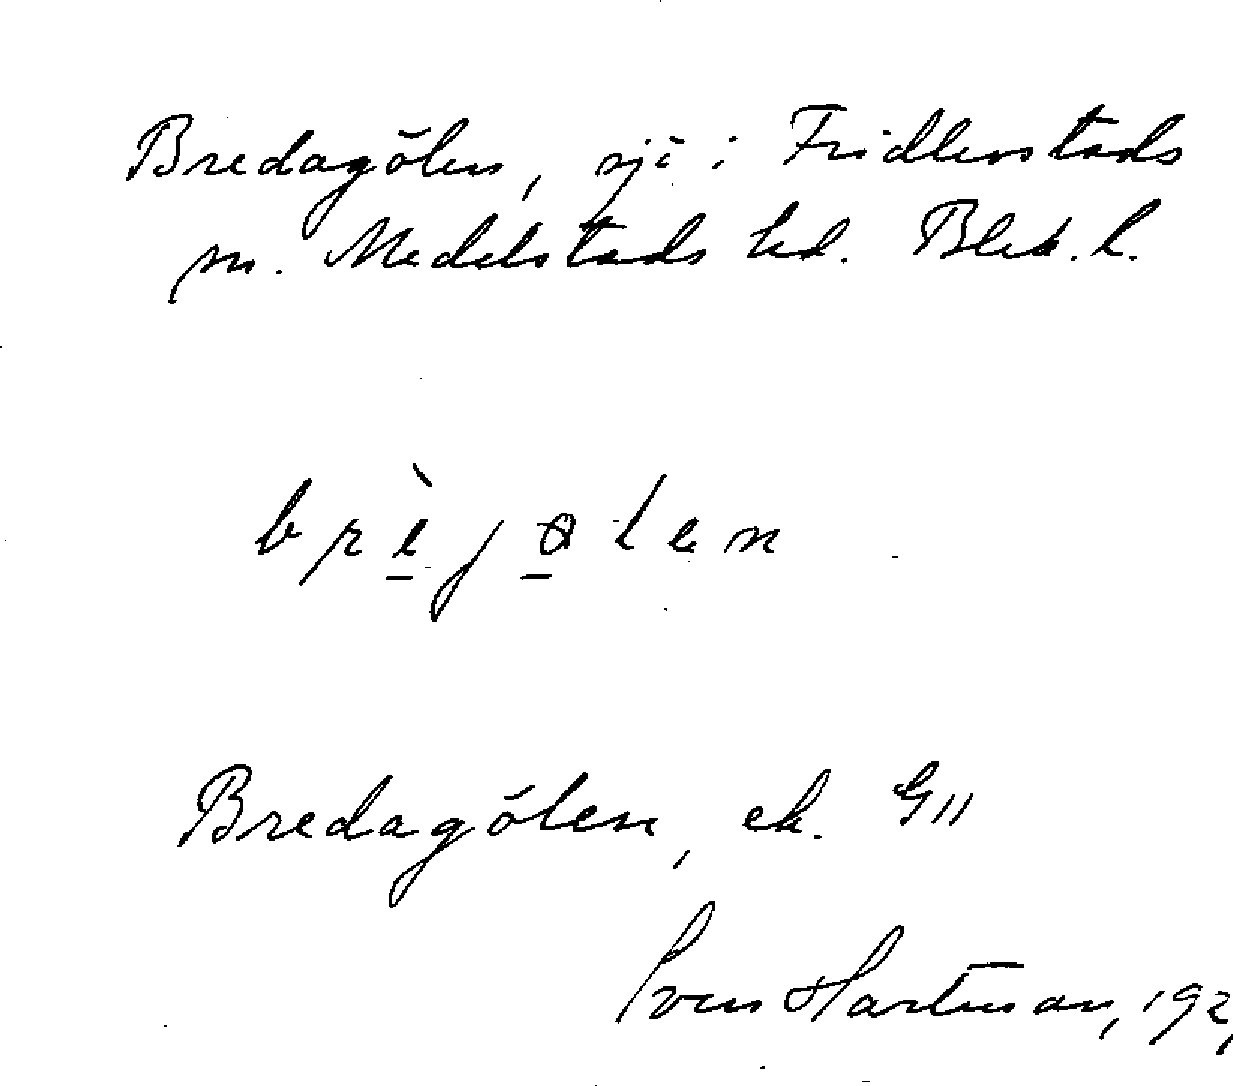 Bredagölen, sjö i Fridlevstads
sn. Medelstads hd. Blek. l.
brèjølen
Bredagölen, ek. G11
Sven Hartman, 192